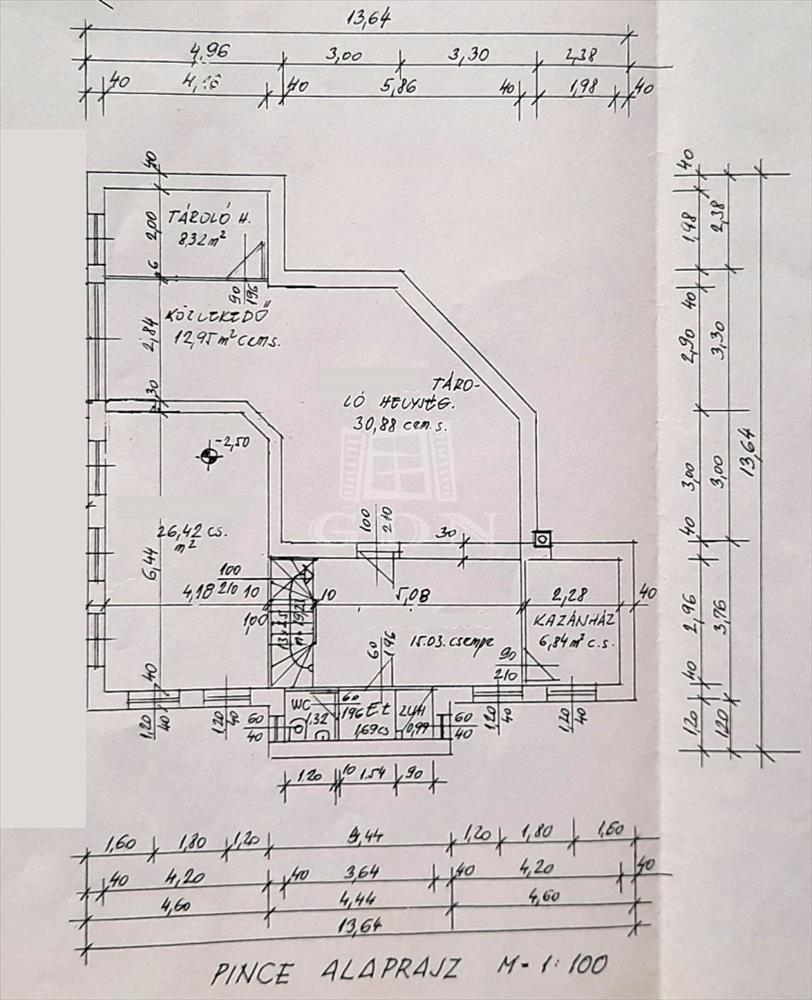 13,64
4,96 3,00 3,30 2,38
40 40 5,86 40 1,98 40
40
TÁROLÓ H.
8,32 m²
2,00
6
90
196
KÖZLEKEDŐ
12,95 m² cem s.
2,84
30
TÁRO-
LÓ HELYSÉG.
30,88 cem. s.
-2,50
GDN
26,42 cs.
m²
6,44
100
210
30
100
210
4,18
10
10
5,08
2,28
40
1,00
KAZÁNHÁZ
6,84 m² c.s.
15.03. csempe
60
196
90
210
40
WC
1,32
60
196
Et
1,69 cs
ZUH
0,99
1,20
40
40
60
40
60
40
1,20
40
40
1.20 10 1.54 90
1,60 1,80 1,20 1,20 1,80 1,60
40 4,20 40 3,64 40 4,20 40
4,60 4,44 4,60
13,64
40
1,98 2,38
40
2,90 3,30
3,00 3,00
13,64
40
2,96 3,76
40
1,20 1,20
PINCE ALAPRAJZ M-1:100